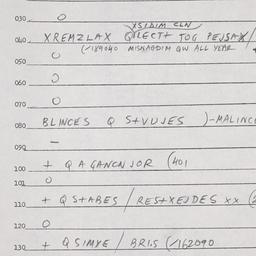 030 O
XSIDIM CLN
040 XREMZLAX QILECTT TOG PEJSAX/
(189040 MISKAODIM QW ALL YEAR
050
060
070 O
080 BLINCES Q S+VUJES )-MALINCE
090 —
100 + Q A GANCN JOR (401
101 O
110 + Q STABES / RES+XEJDES XX (2
120 O
130 + Q SIMYE / BRIS (/162090